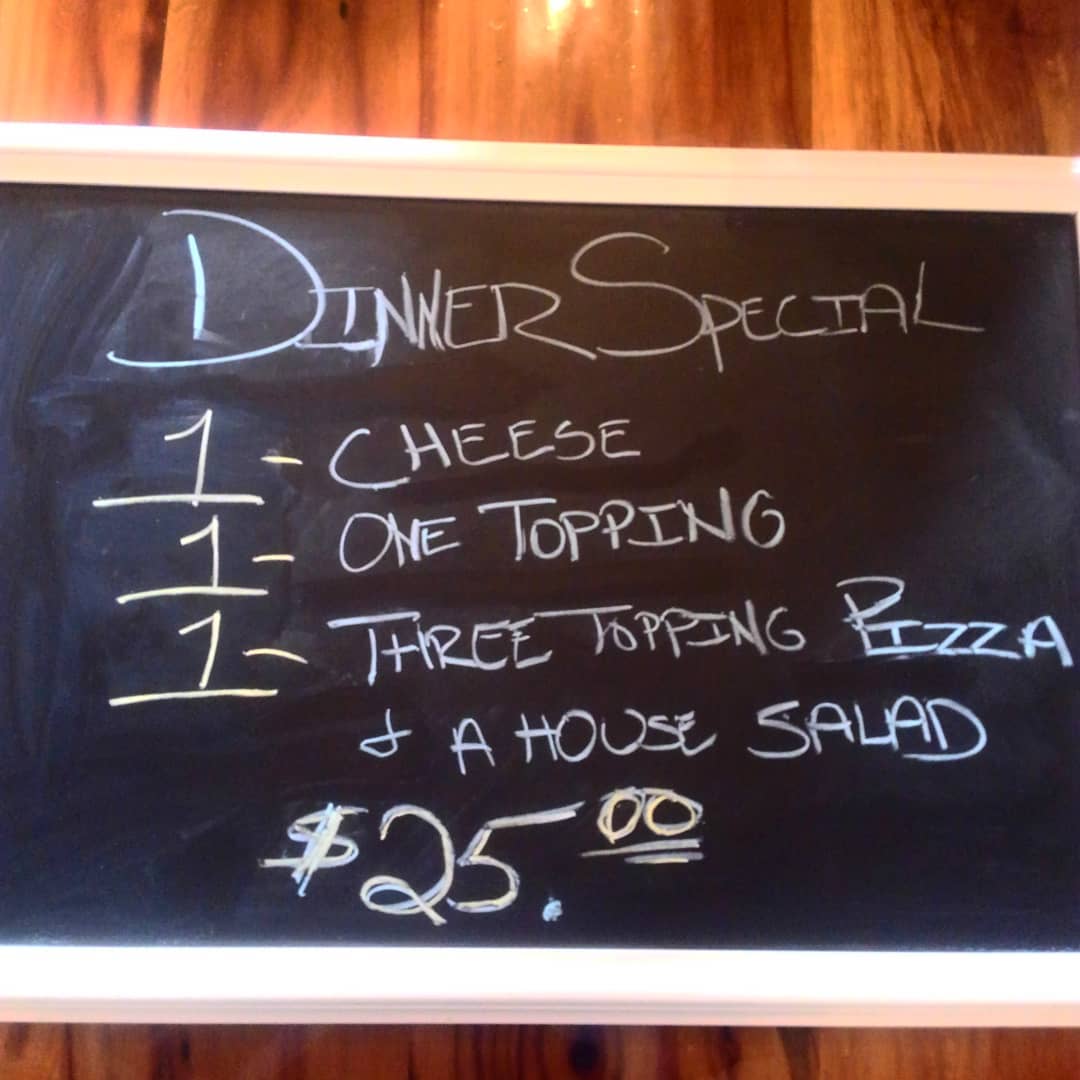 DINNER SPECIAL
1 - CHEESE
1 - ONE TOPPING
1 - THREE TOPPING PIZZA
& A HOUSE SALAD
$25.00